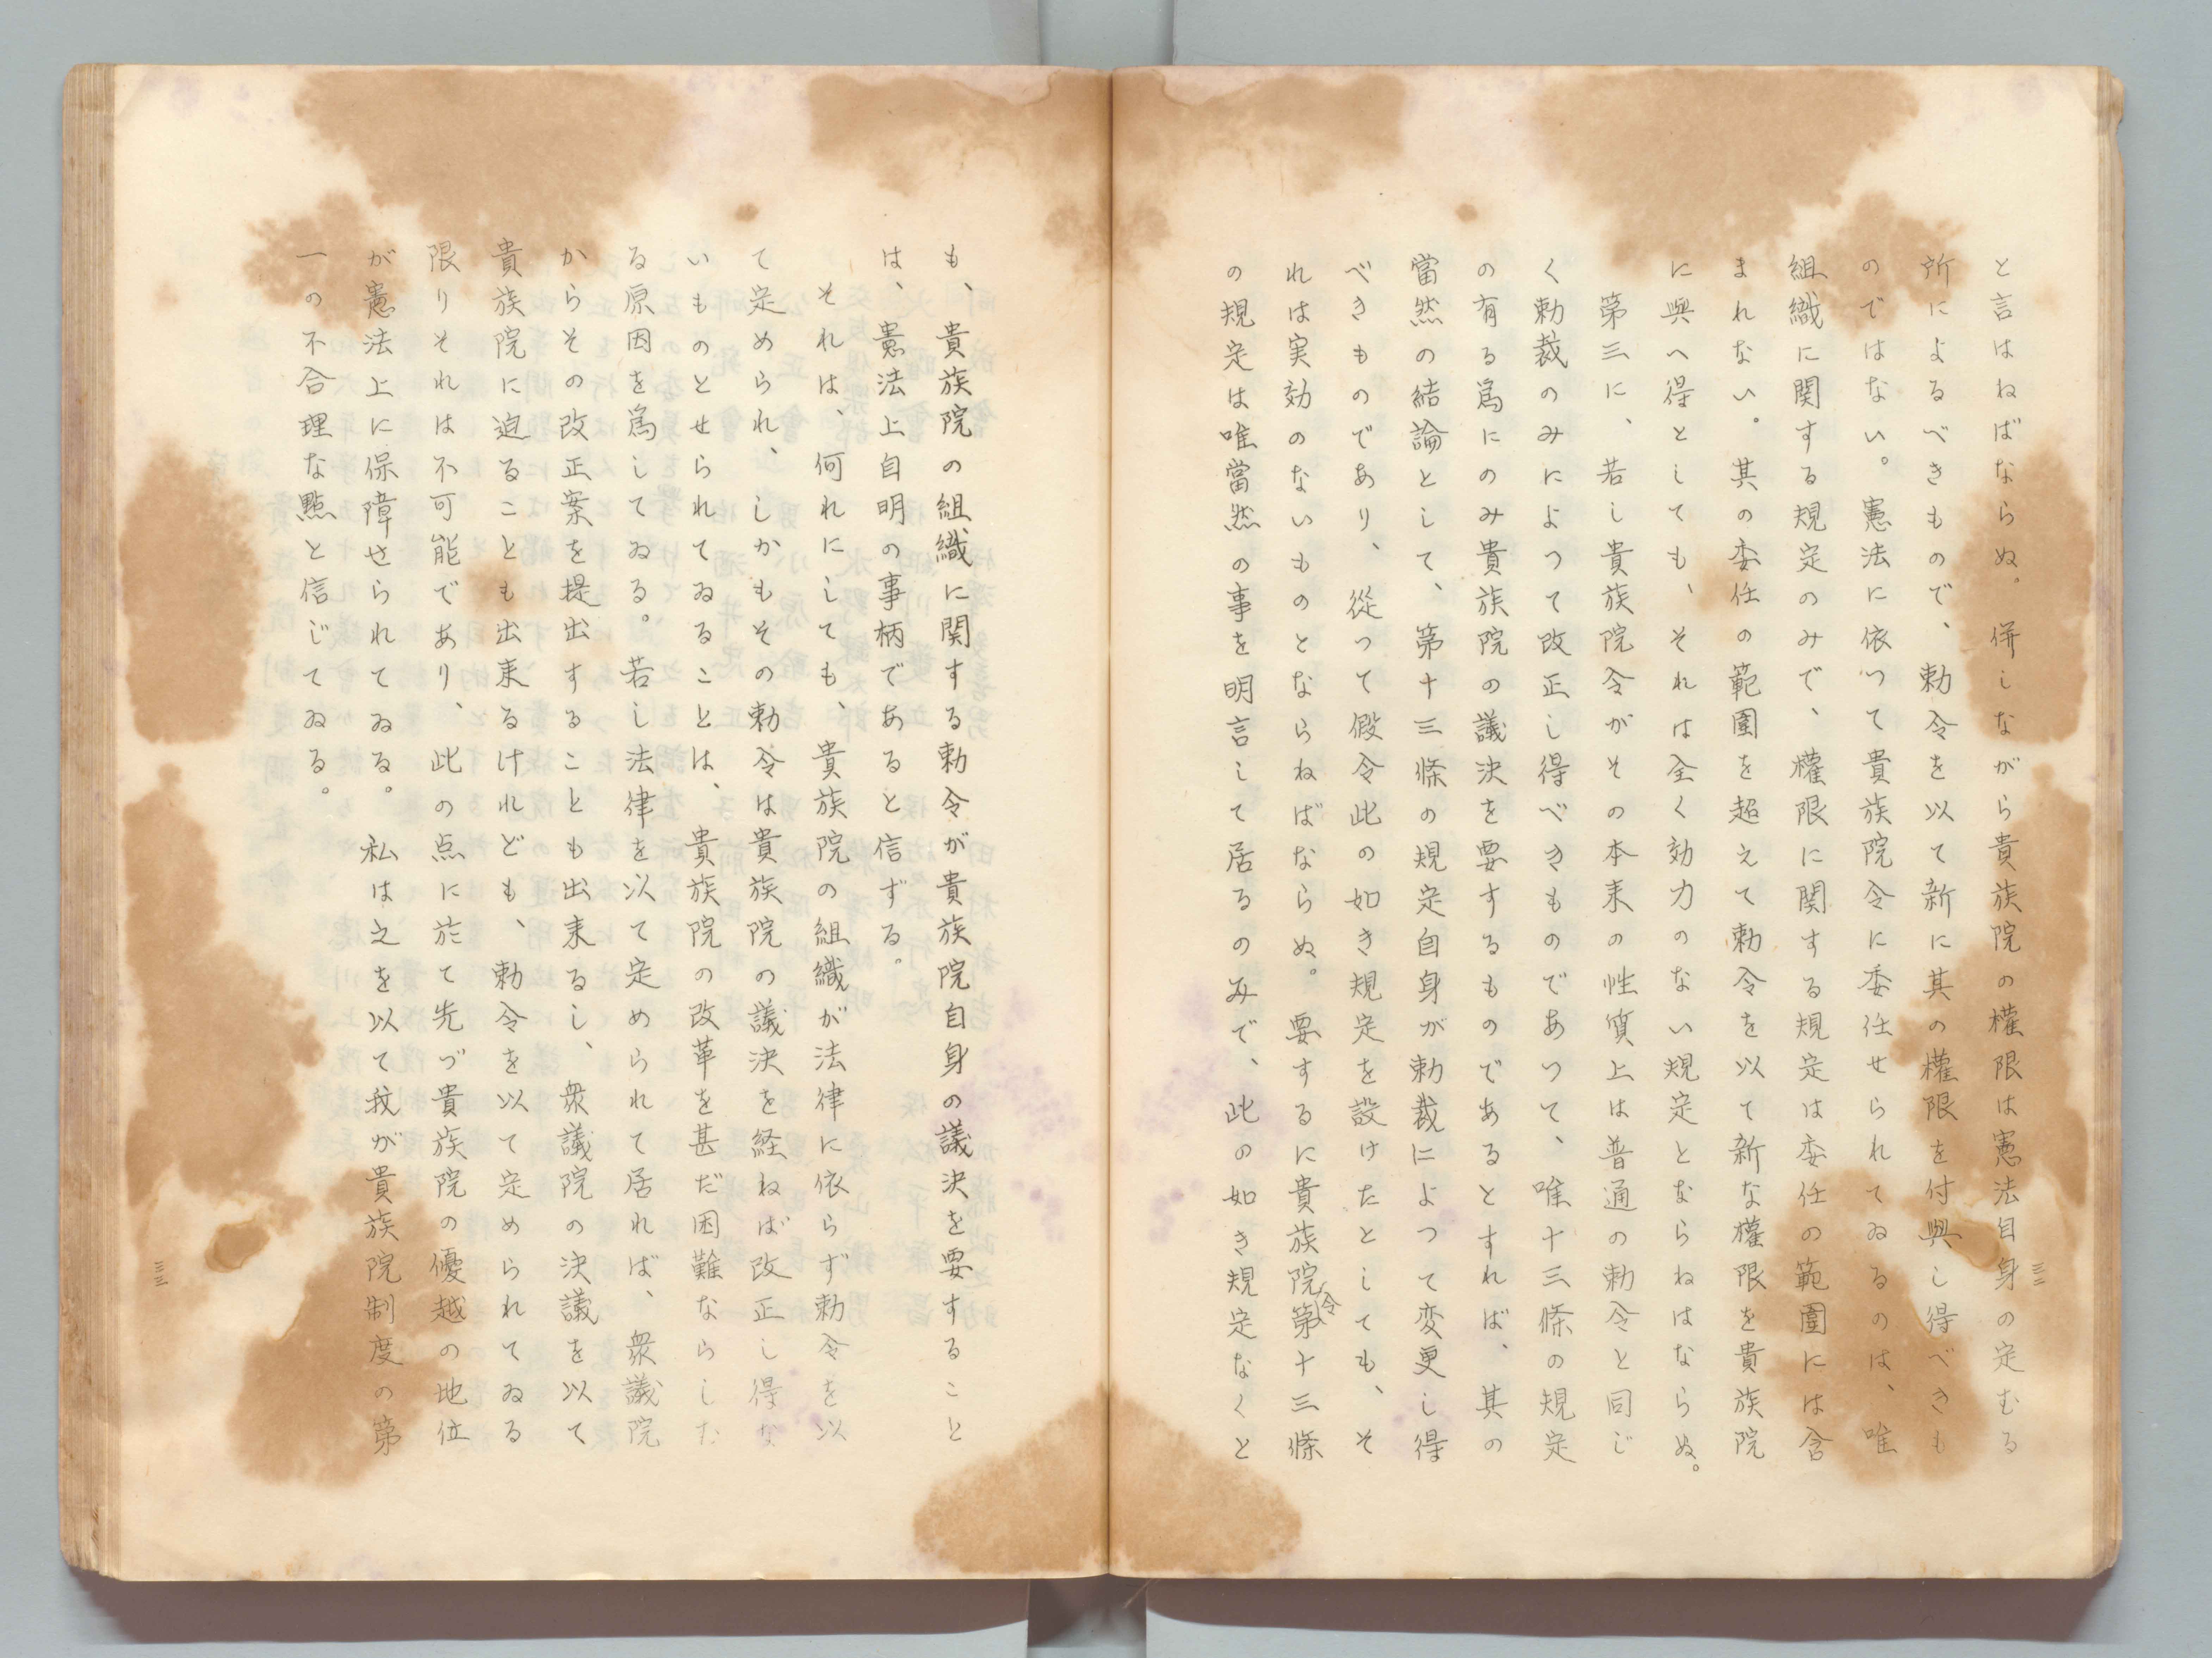 と言はねばならぬ。併しながら貴族院の權限は憲法自身の定むる
所によるべきもので、勅令を以て新に其の權限を付與し得べきも
のではない。憲法に依つて貴族院令に委任せられてゐるのは、唯
組織に関する規定のみで、權限に関する規定は委任の範圍には含
まれない。其の委任の範圍を超えて勅令を以て新な權限を貴族院
に與へ得としても、それは全く効力のない規定とならねはならぬ。
第三に、若し貴族院令がその本来の性質上は普通の勅令と同じ
く勅裁のみによつて改正し得べきものであつて、唯十三條の規定
の有る爲にのみ貴族院の議決を要するものであるとすれば、其の
當然の結論として、第十三條の規定自身が勅裁によつて変更し得
べきものであり、從つて假令此の如き規定を設けたとしても、そ
れは実効のないものとならねばならぬ。要するに貴族院令第十三條
の規定は唯當然の事を明言して居るのみで、此の如き規定なくと
三二
も、貴族院の組織に関する勅令が貴族院自身の議決を要すること
は、憲法上自明の事柄であると信ずる。
それは、何れにしても、貴族院の組織が法律に依らず勅令を以
て定められ、しかもその勅令は貴族院の議決を経ねば改正し得な
いものとせられてゐることは、貴族院の改革を甚だ困難ならしむ
る原因を爲してゐる。若し法律を以て定められて居れば、衆議院
からその改正案を提出することも出来るし、衆議院の決議を以て
貴族院に迫ることも出来るけれども、勅令を以て定められてゐる
限りそれは不可能であり、此の点に於て先づ貴族院の優越の地位
が憲法上に保障せられてゐる。私は之を以て我が貴族院制度の第
一の不合理な點と信じてゐる。
三三